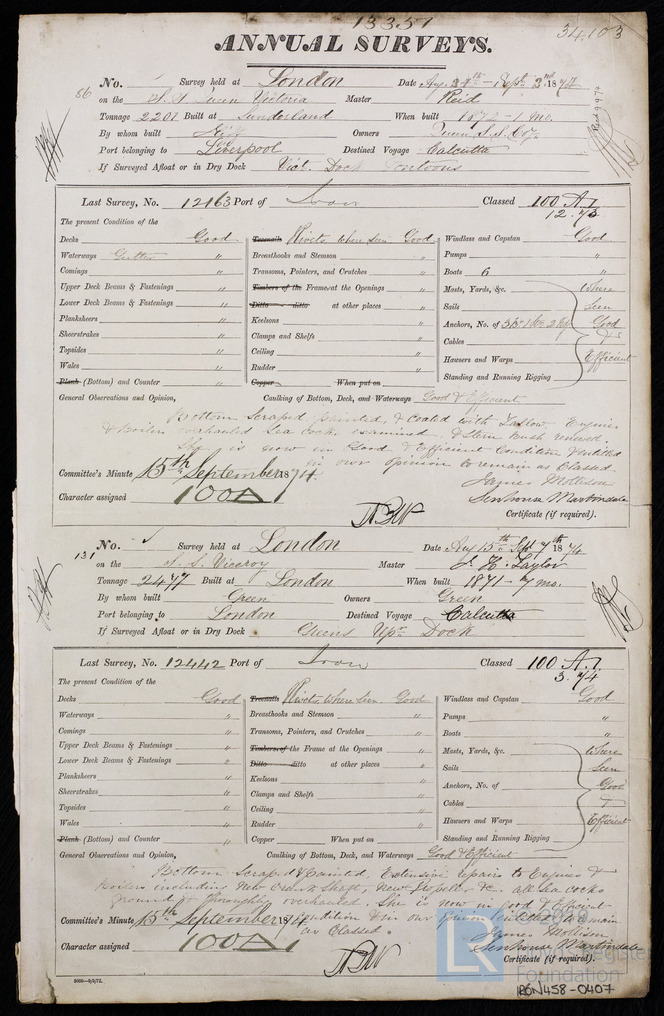 13351
34.103
ANNUAL SURVEYS.
86
No. Survey held at London Date Aug. 27th - Sept. 3rd 1874
on the S.S. Queen Victoria Master Reid
Tonnage 2207 Built at Sunderland When built 1872 - 1 mo.
By whom built Owners Queen S.S. Coy.
Port belonging to Liverpool Destined Voyage Calcutta
If Surveyed Afloat or in Dry Dock Vict. Dock Pontoons
Last Survey, No. 12163 Port of Iron Classed 100 A.1.
12.73
The present Condition of the
Decks Good Treenails Rivets where seen Good Windlass and Capstan Good
Waterways Gutter " Breasthooks and Stemson " Pumps "
Comings " Transoms, Pointers, and Crutches " Boats 6 "
Upper Deck Beams & Fastenings " Timbers of the Frame at the Openings " Masts, Yards, &c. Where
Lower Deck Beams & Fastenings " Ditto ditto at other places " Sails Seen
Planksheers " Keelsons " Anchors, No. of Good
Sheerstrakes " Clamps and Shelfs " Cables &
Topsides " Ceiling " Hawsers and Warps Efficient
Wales " Rudder " Standing and Running Rigging
Plank (Bottom) and Counter " Copper When put on
General Observations and Opinion, Caulking of Bottom, Deck, and Waterways Good & Efficient
Bottom Scraped painted, & Coated with Tallow. Engines
& Boilers overhauled Sea cocks examined. & Stern bush renewed.
She is now in Good & Efficient Condition & entitled
in our opinion to remain as Classed.
Committee's Minute 15th September 1874. James Mollison
Character assigned 100A1 Senhouse Martindale
Certificate (if required).
131
No. Survey held at London Date Aug 15th to Sept 7th 1874
on the S.S. Viceroy Master J. H. Taylor
Tonnage 2477 Built at London When built 1871 - 7 mo.
By whom built Green Owners Green
Port belonging to London Destined Voyage Calcutta
If Surveyed Afloat or in Dry Dock Greens Upr Dock
Last Survey, No. 12442 Port of Iron Classed 100 A.1.
3.74
The present Condition of the
Decks Good Treenails Rivets where seen Good Windlass and Capstan Good
Waterways " Breasthooks and Stemson " Pumps "
Comings " Transoms, Pointers, and Crutches " Boats "
Upper Deck Beams & Fastenings " Timbers of the Frame at the Openings " Masts, Yards, &c. Where
Lower Deck Beams & Fastenings " Ditto ditto at other places " Sails Seen
Planksheers " Keelsons " Anchors, No. of Good
Sheerstrakes " Clamps and Shelfs " Cables &
Topsides " Ceiling " Hawsers and Warps Efficient
Wales " Rudder " Standing and Running Rigging
Plank (Bottom) and Counter " Copper When put on
General Observations and Opinion, Caulking of Bottom, Deck, and Waterways Good & Efficient
Bottom Scraped & Painted, Extensive repairs to Engines &
Boilers including New Crank Shaft, New Propeller &c. all Sea cocks
ground & thoroughly overhauled. She is now in good & Efficient
Condition & in our opinion entitled to remain
as Classed.
Committee's Minute 15th September 1874 James Mollison
Character assigned 100A1 Senhouse Martindale
Certificate (if required).
LR Foundation
IRON458-0407